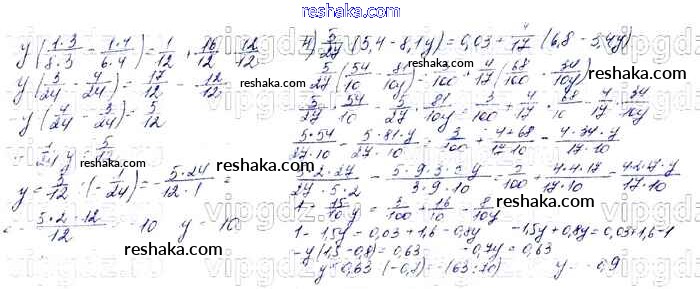 y(1·3/8·3 - 1·4/6·4) = 1/12 · 16/12 - 12/12
y(3/24 - 4/24) = 17/12 - 12/12
-y(4/24 - 3/24) = 5/12
- 1/24 y = 5/12
y = 5/12 : (-1/24) = - 5·24/12·1 =
= - 5·2·12/12 - 10 y - 10
4) 5/27 (5,4 - 8,1y) = 0,03 + 4/17 (6,8 - 3,4y)
5/27 (54/10 - 81/10 y) = 3/100 + 4/17 (68/10 - 34/10 y)
5/27 · 54/10 - 5/27 · 81/10 y = 3/100 + 4/17 · 68/10 - 4/17 · 34/10 y
5·54/27·10 - 5·81·y/27·10 = 3/100 + 4·68/17·10 - 4·34·y/17·10
5·2·27/27·5·2 - 5·9·3·3y/3·9·10 = 3/100 + 4·4·17/17·10 - 4·2·17·y/17·10
1 - 15/10 y = 3/100 + 16/10 - 8/10 y
1 - 1,5y = 0,03 + 1,6 - 0,8y -1,5y + 0,8y = 0,03 + 1,6 - 1
-y(1,5 - 0,8) = 0,63 -0,7y = 0,63
y = 0,63 (-0,7) - (63:70) y - 0,9
reshaka.com
reshaka.com
reshaka.com
reshaka.com
reshaka.com
reshaka.com
reshaka.com
reshaka.com
reshaka.com
vipgdz
vipgdz